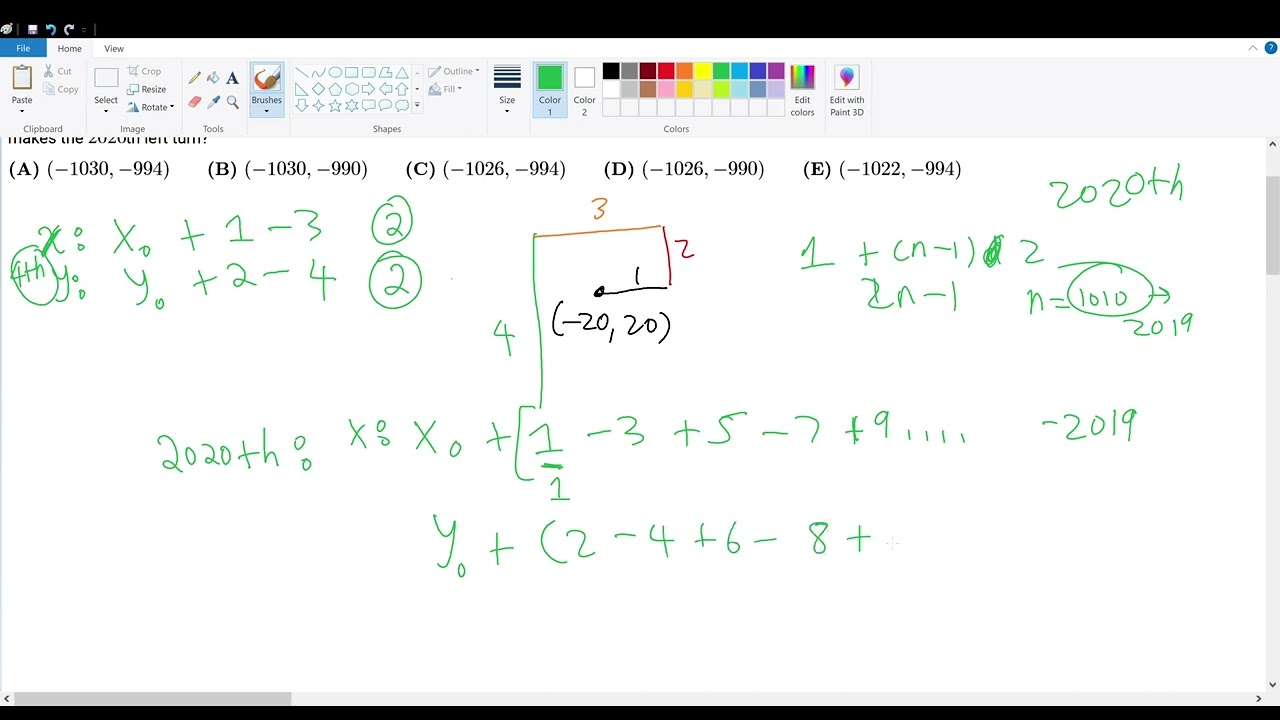 File Home View
Paste Cut Copy Select Crop Resize Rotate A Brushes Outline Fill Size Color 1 Color 2 Edit colors Edit with Paint 3D
Clipboard Image Tools Shapes Colors
makes the 2020th left turn?
(A) (−1030, −994) (B) (−1030, −990) (C) (−1026, −994) (D) (−1026, −990) (E) (−1022, −994)
2020th
3
x: x₀ + 1 − 3 2
2
1 + (n−1) 2
4th y: y₀ + 2 − 4 2
1
2n − 1 n = 1010 → 2019
(−20, 20)
4
2020th: x: x₀ + [1 − 3 + 5 − 7 + 9 .... −2019
1
y₀ + (2 − 4 + 6 − 8 +